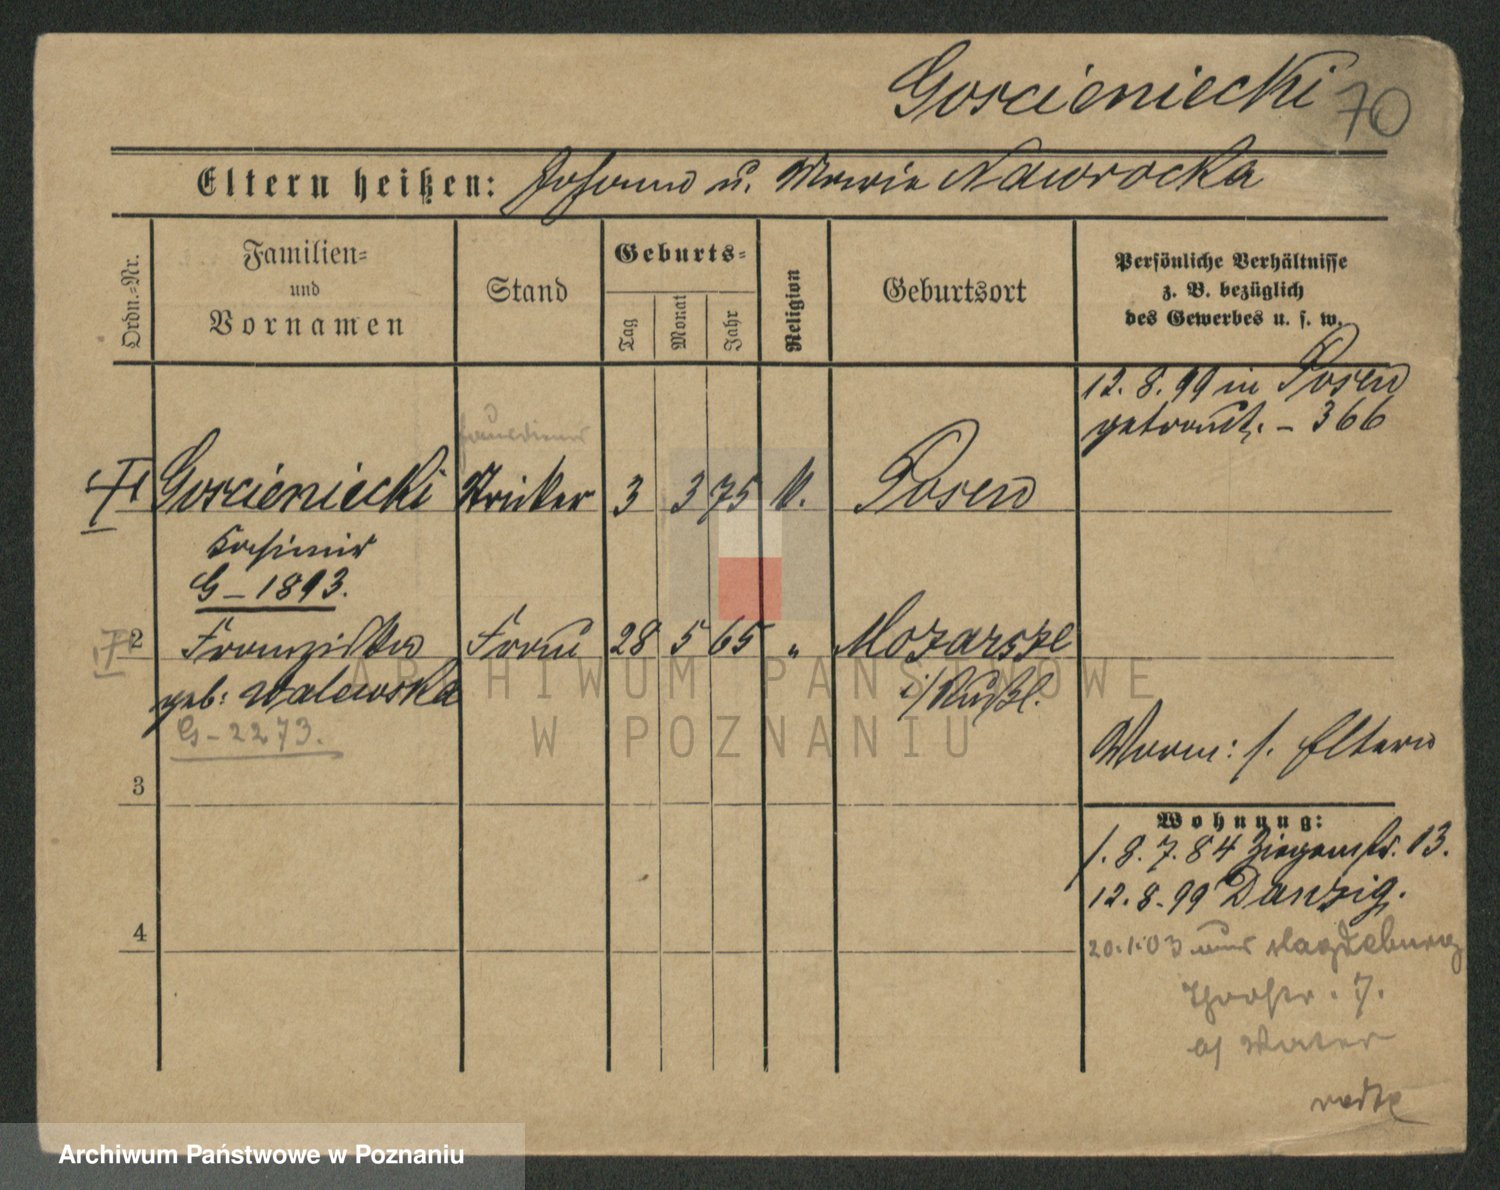 Goscieniecki 70
Eltern heißen: Johann u. Maria Nawrocka
Ordn.=Nr.
Familien=
und
Vornamen
Stand
Geburts=
Tag
Monat
Jahr
Religion
Geburtsort
Persönliche Verhältnisse
z. B. bezüglich
des Gewerbes u. s. w.
12.8.99 in Posen
getraut. – 366
Goscieniecki 3 3 75 k. Posen
Kasimir
G – 1893.
2 Franziska Frau 28 5 65 "
geb: Walewska i/Rußl.
G – 2273.
Vorm: s. Eltern
3
Wohnung:
1.8.7.84 Ziegenstr. 13.
12.8.99 Danzig.
4
20.1.03 Magdeburg
7.
a/ Vater
ARCHIWUM PAŃSTWOWE
W POZNANIU
Archiwum Państwowe w Poznaniu